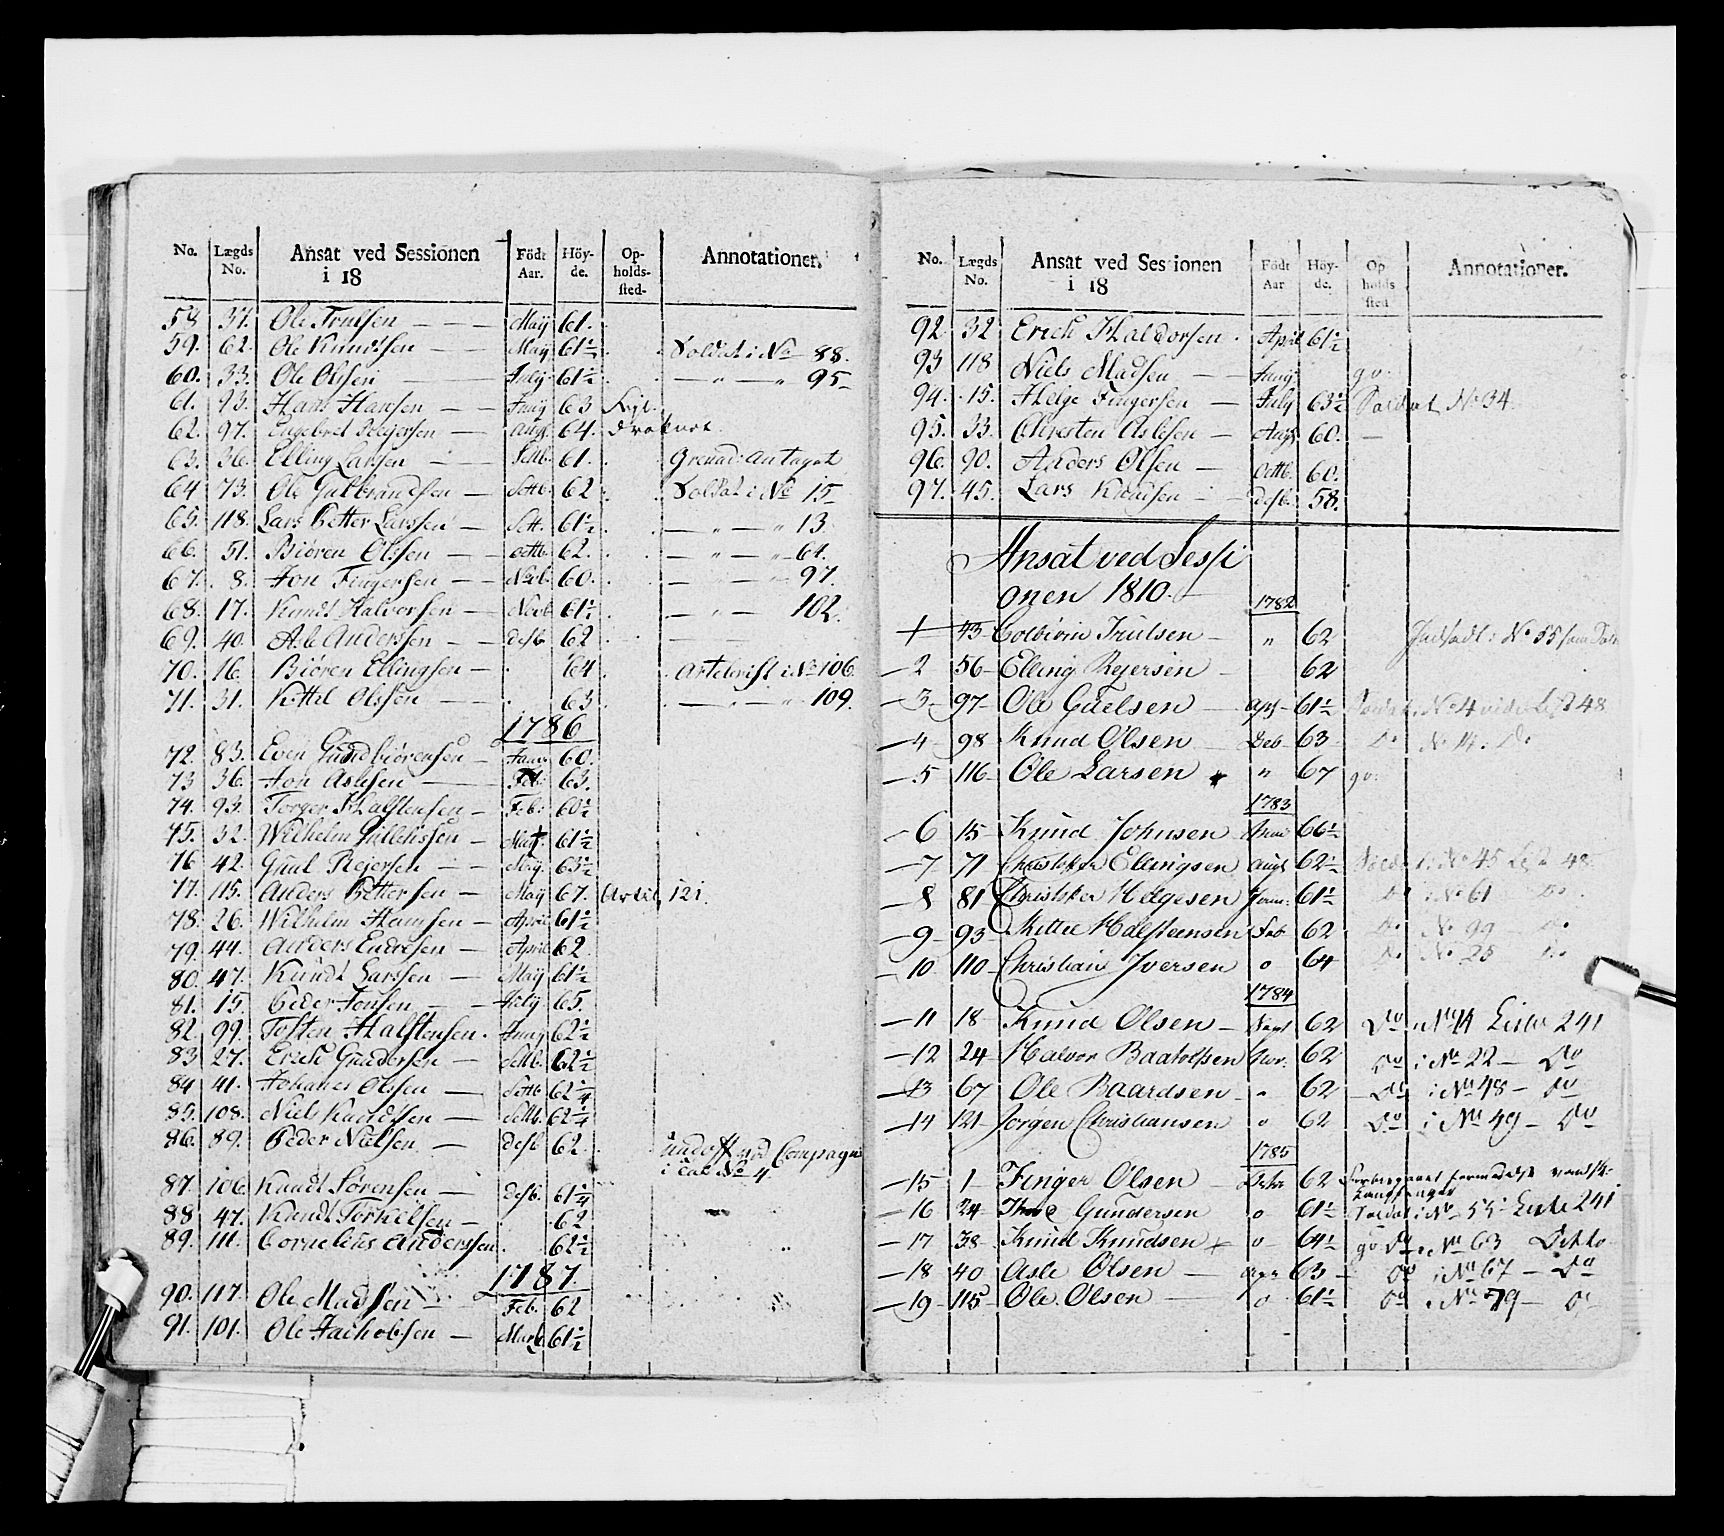 No. Lægds No. Ansat ved Sessionen i 18 Födt Aar. Höy-de. Op-holds-sted- Annotationer.
58 37. Ole Trulsen — Maÿ 61.
59. 62. Ole Knudtsen — Maÿ 61½ Soldat i No 88.
60. 33. Ole Olsen — July 61½ — " — " 95
61. 93. Hans Hansen — Juny 63
62. 97. Engebret Rejersen — Aug. 64.
63. 36. Elling Larsen — Settb. 61. Grenad: antaget
64 73. Ole Gulbrandsen — Settb. 62 Soldat i No 15
65. 118. Lars Petter Larssen — Sett. 61½ — " — " 13.
66. 51. Biören Olssen — octb. 62. — " — " 64.
67. 8. Jon Fingersen — Novb. 60. — " 97.
68. 17. Knudt Halvorsen — Novb. 61½ — " — 102.
69. 40. Asle Anderssen — desb. 62
70. 16. Biören Ellingsen — 64 i No 106.
71. 31. Kittil Olssen — 63 — " — " 109.
1786
72. 83. Even Gundbiörensen — Janu 60.
73 36. Jon Aslesen — Feb. 63.
74. 93. Torger Halstensen — Feb: 60½
75. 32. Wilhelm — Maÿ. 61½
76 42. Guul Rejersen — Maÿ. 63½
77. 115. Anders Pettersen — Maÿ 67. Artil. 121.
78. 26. Wilhelm Hansen — April 61½
79. 44. Anders Endresen — April 62.
80. 47. Knudt Larssen — Maÿ 61½
81. 15. Peder Jonsen — July 65.
82. 99. Tosten Halstensen. Juny 62½
83 27. Erich Gundersen — Settb. 62½
84 41. Johanes Olssen — Settb 62¼
85. 108. Niels Knudtsen — Settb. 62¼
86. 89. Peder Nielsen — desb 62. Undoff. ved Compagn
i No 4
87. 106. Knudt Sörensen — desb. 61¼
88 47. Knudt Torkelsen — 62
89. 111. Cornelius Anderssen. 62½
1787.
90. 117. Ole Madsen — Feb. 62
91. 101. Ole Jachobsen — Marti 61½
No. Lægds No. Ansat ved Sessionen i 18 Födt Aar Höy-de. Op holds sted Annotationer.
92. 32 Erich Haldorsen. April 61½
93 118 Niels Madsen — Juny go.
94. 15. Helge Fingersen — July 63½ Soldat No 34
95. 33. Christen Aslesen — Aug. 60. —
96. 90. Anders Olsen — Octb. 60.
97. 45. Lars Knudsen — desb. 58.
Ansat ved Sessi
onen 1810. —
1782
1 43 Colbiörn Trulsen — " 62 Indsadt i No 55 som
2 56 Elling Rejersen — 62
3 97 Ole Guelsen — 61½ Soldat i No 4 vide List 48
4 98 Knud Olsen — Deb 63 Do No 14. Do
5 116 Ole Larsen " 67 go.
1783
6 15 Knud Johnsen 66½
7 71 Christopher Ellingsen Augt 62½ Soldat i No 45 List 48
8 81 Christopher Helgesen Janu. 61½ Do i No 61 Do
9 93 Kittel Halsteensen Feb 62 Do No 99 Do
10 110 Christian Iversen o 64 Do No 25 Do
1784
11 18 Knud Olsen — 62 Do i No 14 Liste 241
12 24 Halvor Baatolfsen 62 Do i No 22 — Do
13 67 Ole Baardsen — " 62 Do i No 48 — Do
14 121 Jörgen Christiansen o 62 Do i No 49 — Do
1785
15 1 Finger Olsen — 62 formedelst
16 24 Gundersen o 61½ Soldat i No 55 Liste 241
17 38 Knud Knudsen o 64½ go Do i No 63 Ditto
18 40 Asle Olsen — Apr 63 Do i No 67 — Do
19 115 Ole Olsen — o 61½ Do i No 79 — Do